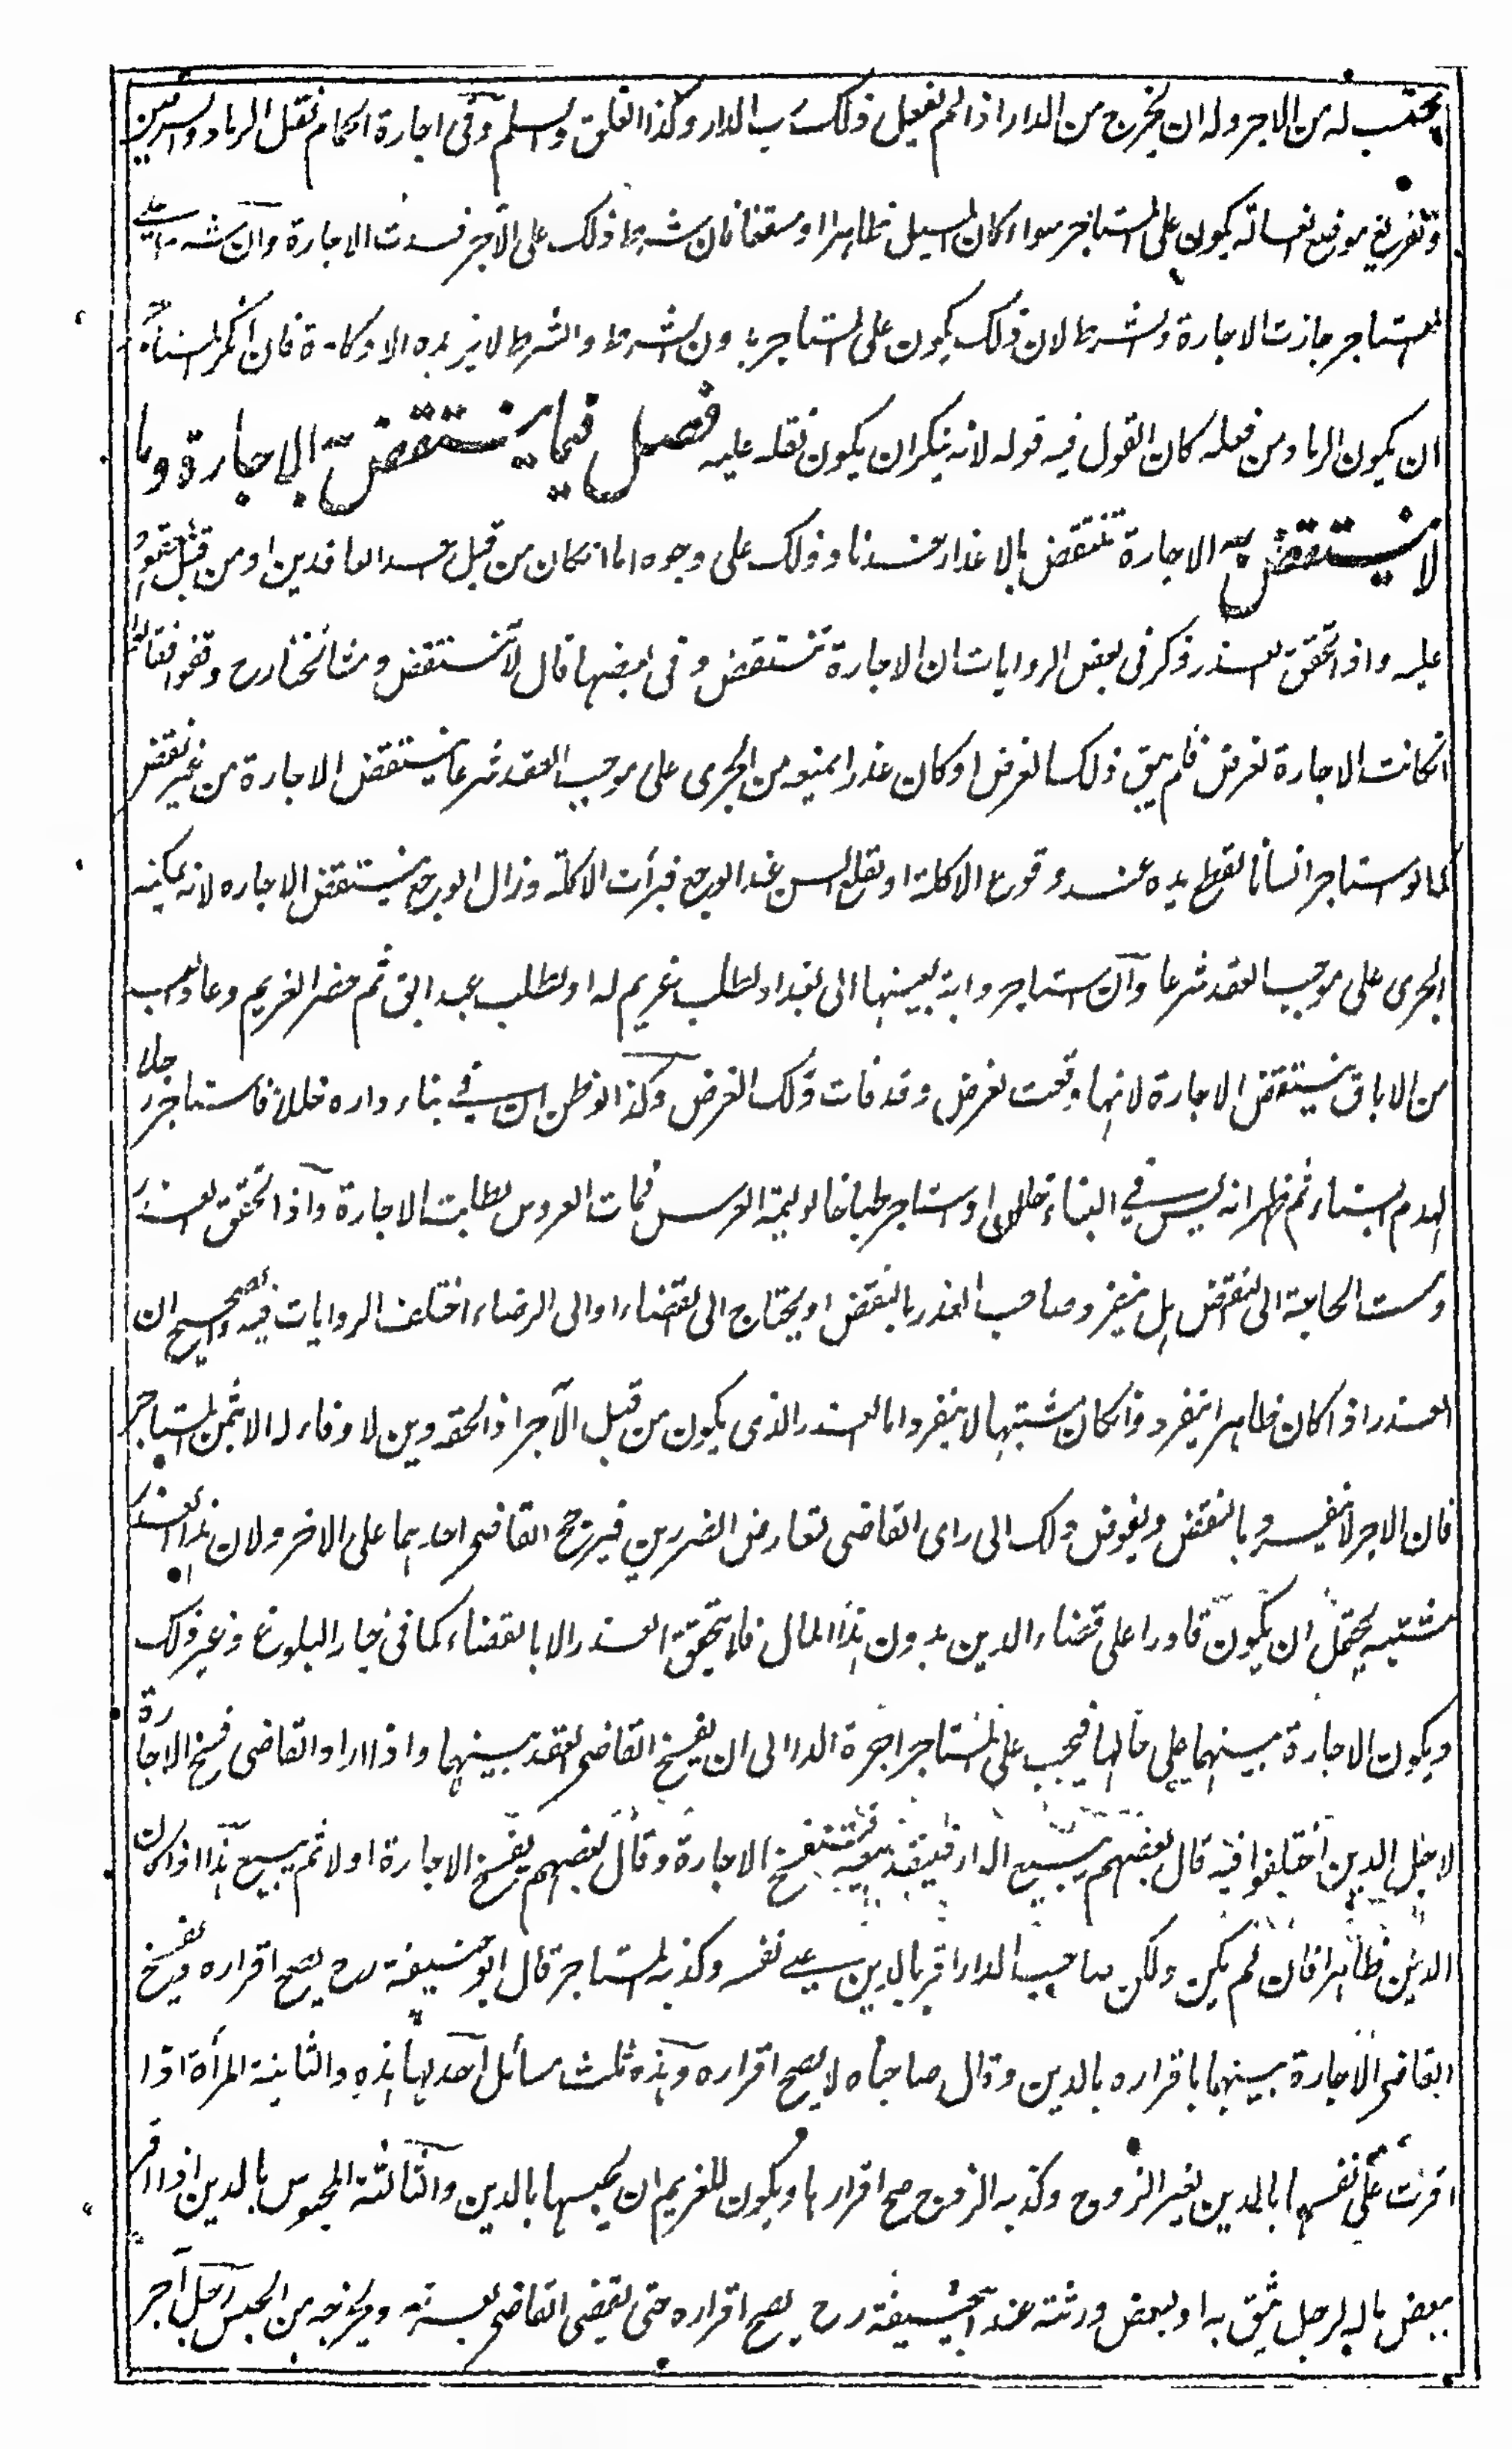 يحتسب له من الاجر وله ان يخرج من الدار اذا لم يفعل ذلك رب الدار وكذا الغلق والسلم وفى اجارة الحمام نقل الرماد والسرقين
وتفريغ موضع الغسالة يكون على المستاجر سواء كان المسيل ظاهرا او مسقفا فان شرط ذلك على الآجر فسدت الاجارة وان شرط على
المستاجر جازت الاجارة والشرط لان ذلك يكون على المستاجر بدون الشرط والشرط لا يزيده الا وكادة فان انكر المستاجر
ان يكون الرماد من فعله كان القول فيه قوله لانه ينكر ان يكون نقله عليه فصل فيما ينتقض به الاجارة وما
لا ينتقض به الاجارة تنتقض بالاعذار عندنا وذلك على وجوه اما ان كان من قبل احد العاقدين او من قبل المعقود
عليه واذا تحقق العذر ذكر فى بعض الروايات ان الاجارة تنتقض وفى بعضها قال لا تنتقض ومشائخنا رح وفقوا فقالوا
ان كانت الاجارة لغرض فلم يبق ذلك الغرض او كان عذرا يمنعه من الجرى على موجب العقد شرعا ينتقض الاجارة من غير نقض
كما لو استاجر انسانا لقطع يده عند وقوع الاكلة او لقلع السن عند الوجع فبرأت الاكلة وزال الوجع ينتقض الاجاره لانه لا يمكنه
الجرى على موجب العقد شرعا وان استاجر دابة بعينها الى بغداد لطلب غريم له او لطلب عبد ابق ثم حضر الغريم وعاد العبد
من الاباق ينتقض الاجارة لانها وقعت لغرض وقد فات ذلك الغرض وكذا لو ظن ان فى بناء داره خللا فاستاجر رجلا
لهدم البناء ثم ظهر انه ليس فى البناء خلل او استاجر طباخا لوليمة العرس فماتت العروس بطلت الاجارة واذا تحقق العذر
ومست الحاجة الى النقض هل ينفرد صاحب العذر بالنقض او يحتاج الى القضاء او الى الرضاء اختلف الروايات فيه والصحيح ان
العذر اذا كان ظاهرا ينفرد وان كان مشتبها لا ينفرد اما العذر الذى يكون من قبل الآجر اذا لحقه دين لا وفاء له الا بثمن المستاجر
فان الاجر لا ينفرد بالنقض ويفوض ذلك الى راى القاضى لتعارض الضررين فيرجح القاضى احدهما على الاخر ولان هذا العذر
مشتبه يحتمل ان يكون قادرا على قضاء الدين بدون هذا المال فلا يتحقق العذر الا بالقضاء كما فى خيار البلوغ وغير ذلك
ويكون الاجارة بينهما على حالها فيجب على المستاجر اجرة الدار الى ان يفسخ القاضى العقد بينهما واذا اراد القاضى فسخ الاجارة
لاجل الدين اختلفوا فيه قال بعضهم يبيع الدار فينفذ بيعه فتنفسخ الاجارة وقال بعضهم يفسخ الاجارة اولا ثم يبيع هذا اذا كان
الدين ظاهرا فان لم يكن ولكن صاحب الدار اقر بالدين على نفسه وكذبه المستاجر قال ابو حنيفة رح يصح اقراره ويفسخ
القاضى الاجارة بينهما باقراره بالدين وقال صاحباه لا يصح اقراره وهذه ثلث مسائل احدها هذه والثانية المرأة اذا
اقرت على نفسها بالدين لغير الزوج وكذبه الزوج صح اقرارها ويكون للغريم ان يحبسها بالدين والثالثة المحبوس بالدين اذا اقر
ببعض ماله لرجل يثق به او لبعض ورثته عند ابيحنيفة رح يصح اقراره حتى يقضى القاضى بعسرته ويخرجه من الحبس رجل آجر